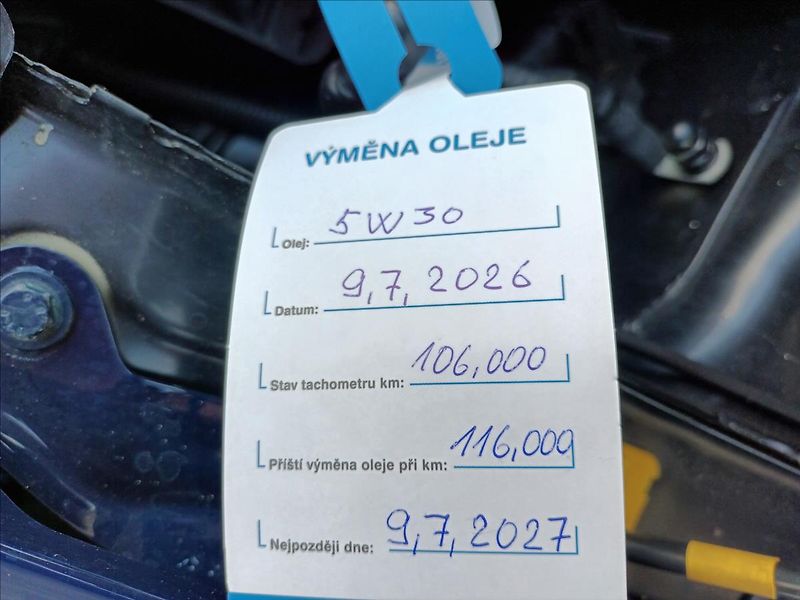 VÝMĚNA OLEJE
Olej: 5W30
Datum: 9,7,2026
Stav tachometru km: 106,000
Příští výměna oleje při km: 116,000
Nejpozději dne: 9,7,2027